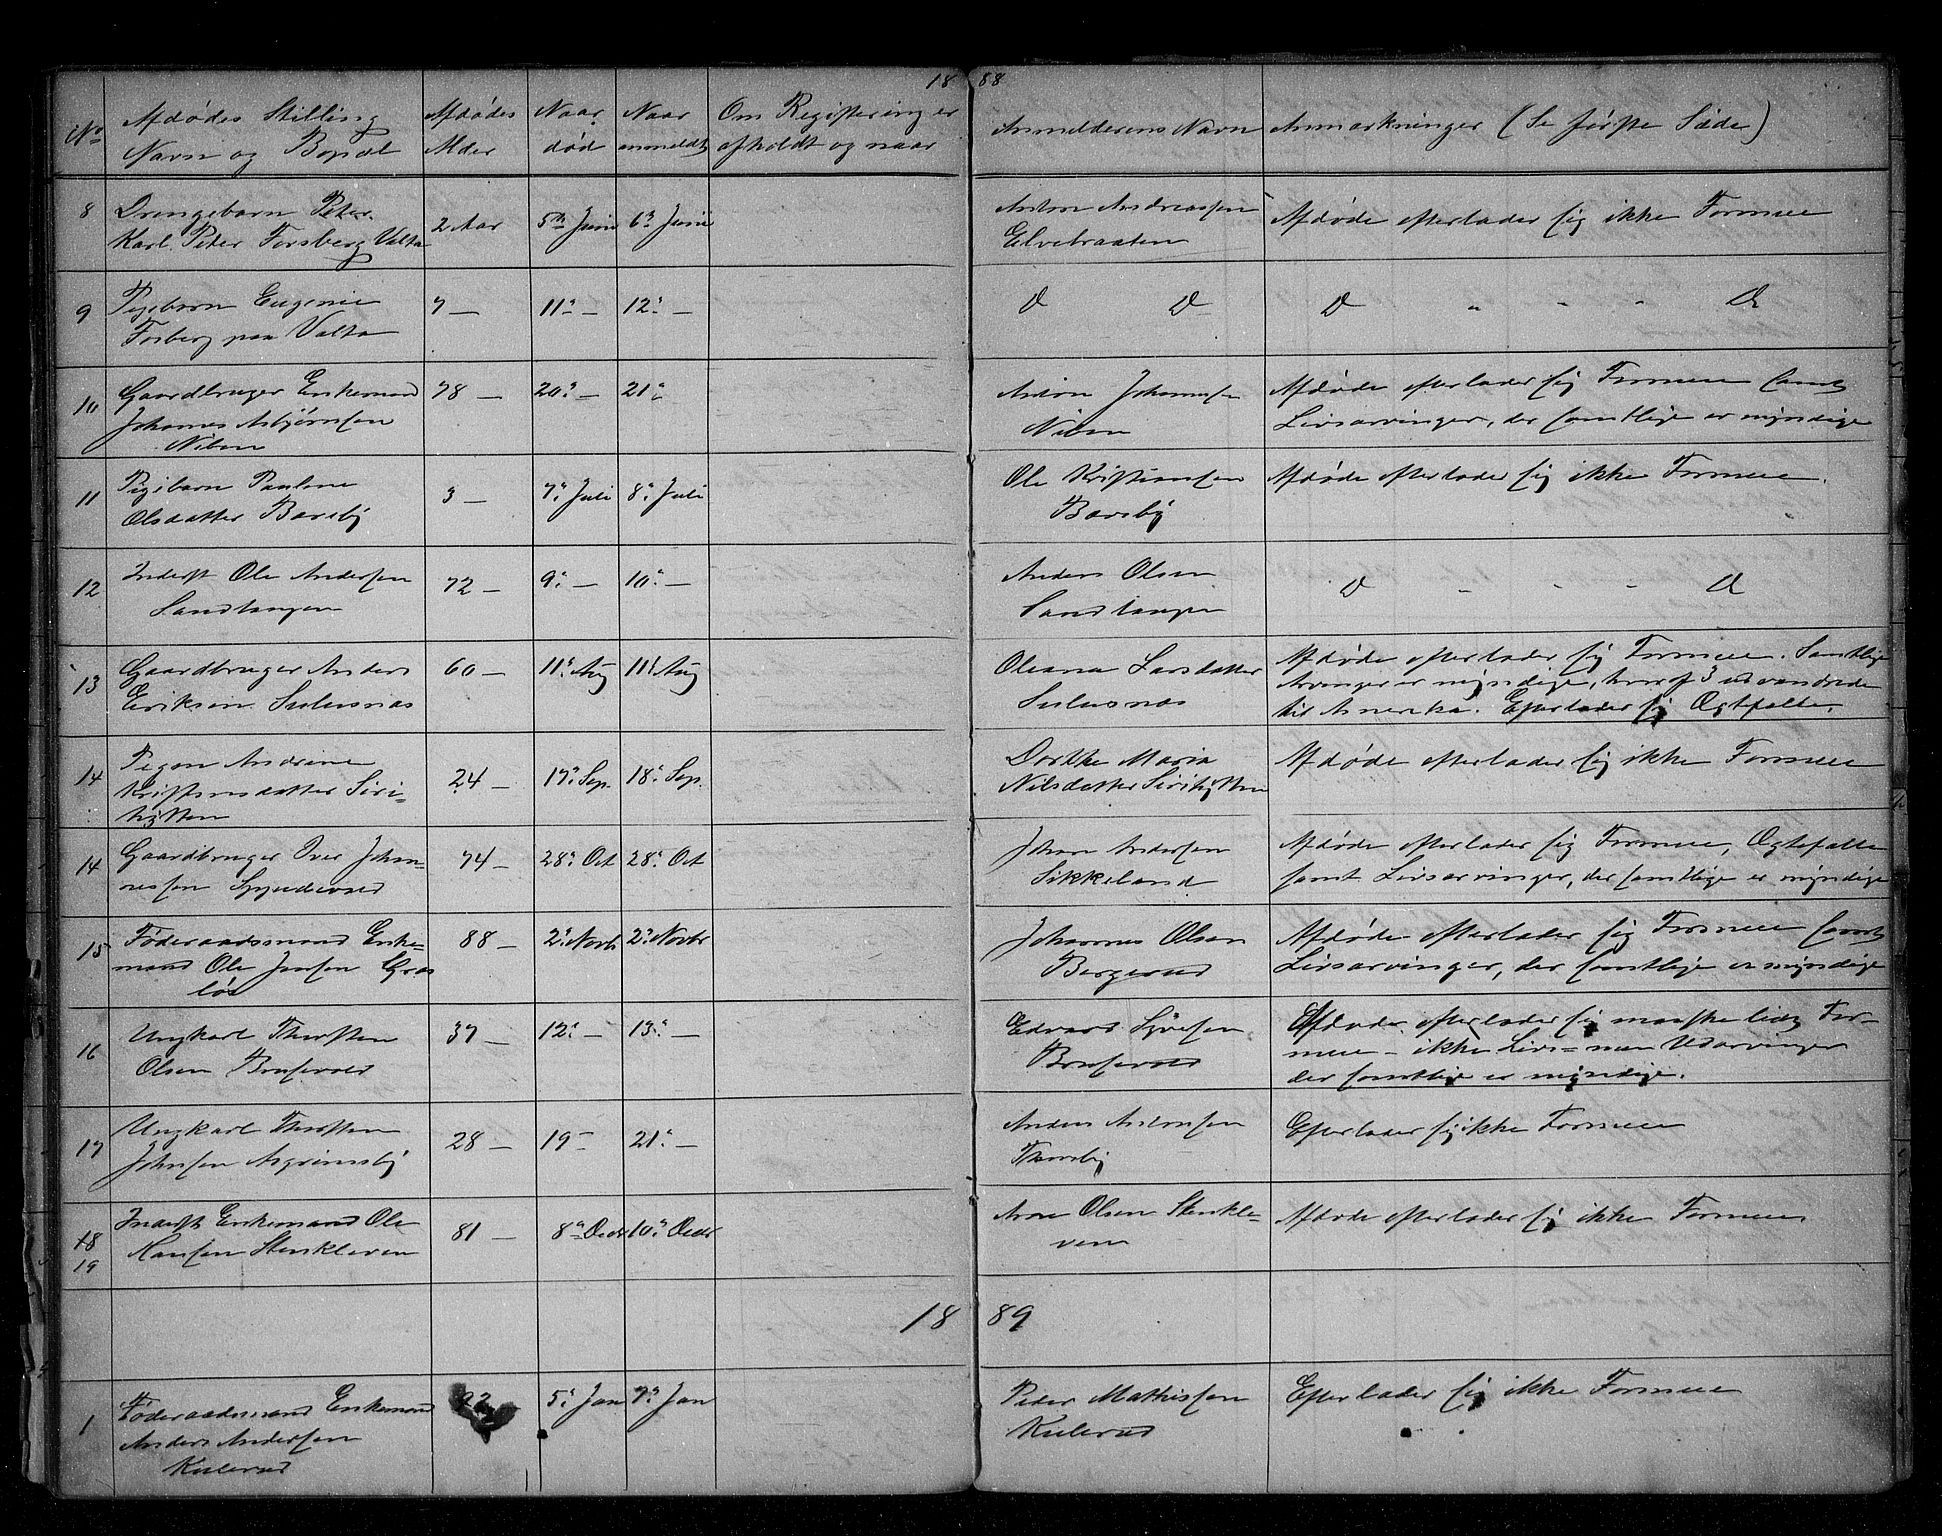 18 88
No
Afdødes Stilling
Navn og Bopæl
Afdødes
Alder
Naar
død
Naar
anmeldt
Om Registrering er
afholdt og naar
Anmelderens Navn
Anmærkninger (Se første Side)
8
Drengebarn Peter
Karl Peter Forsberg Valta
2 Aar
5te Juni
6te Juni
Anton Andreassen
Elvebraaten
Afdøde efterlader sig ikke Formue
9
Pigebarn Eugenie
Forberg paa Valta
7 —
11te —
12te —
D D D " " " D
10
Gaardbruger Enkemand
Johannes Asbjørnsen
Niben
78 —
20de —
21de
Anton Johannesen
Niben
Afdøde efterlader sig Formue samt
Livsarvinger, der samtlige er myndige
11
Pigebarn Pauline
Olsdatter Bareby
3 —
7de Juli
8de Juli
Ole Kristiansen
Bareby
Afdøde efterlader sig ikke Formue.
12
Inderst Ole Andersen
Sandtangen
72 —
9de —
10de —
Anders Olsen
Sandtangen
D " " " D
13
Gaardbruger Anders
Eriksen Sulusnæs
60 —
11te Aug
11te Aug
Oleana Larsdatter
Sulusnæs
Afdøde efterlader sig Formue. Samtlige
Arvinger er myndige, hvoraf 3 udvandrede
til Amerika. Efterlader sig Ægtefælle.
14
Pigen Andrine
Kristensdatter Siri-
hytten
24 —
17de Sep.
18de Sep.
Dorthe Maria
Nilsdatter Sirihytten
Afdøde efterlader sig ikke Formue
14
Gaardbruger Iver Johan-
nessen Spydevold
74 —
28de Oct
28de Oct
Johan Andersen
Sikkeland
Afdøde efterlader sig Formue, Ægtefælle
samt Livsarvinger, der samtlige er myndige
15
Føderaadsmand Enke-
mand Ole Jensen Græs
løs
88 —
2de Novbr
2de Novbr
Johannes Olsen
Bergerud
Afdøde efterlader sig Formue samt
Livsarvinger, der samtlige er myndige
16
Ungkarl Thorsten
Olsen Brusevold
37 —
12te —
13de —
Edvard Syversen
Brusevold
Afdøde efterlader sig maaske lidt For-
mue — ikke Livs= men Udarvinger
der samtlige er myndige.
17
Ungkarl Thorsten
Johnsen Asgrimsby
28 —
19 —
21de —
Anders Antonsen
Thoresby
Efterlader sig ikke Formue
18
19
Inderst Enkemand Ole
Hansen Stenkleven
81 —
8de Decbr
10de Decbr
Arne Olsen Stenkle-
ven
Afdøde efterlader sig ikke Formue
18 89
1
Føderaadsmand Enkemand
Anders Andersen
Kulerud
5te Jan
7de Jan
Peder Mathissen
Kulerud
Efterlader sig ikke Formue